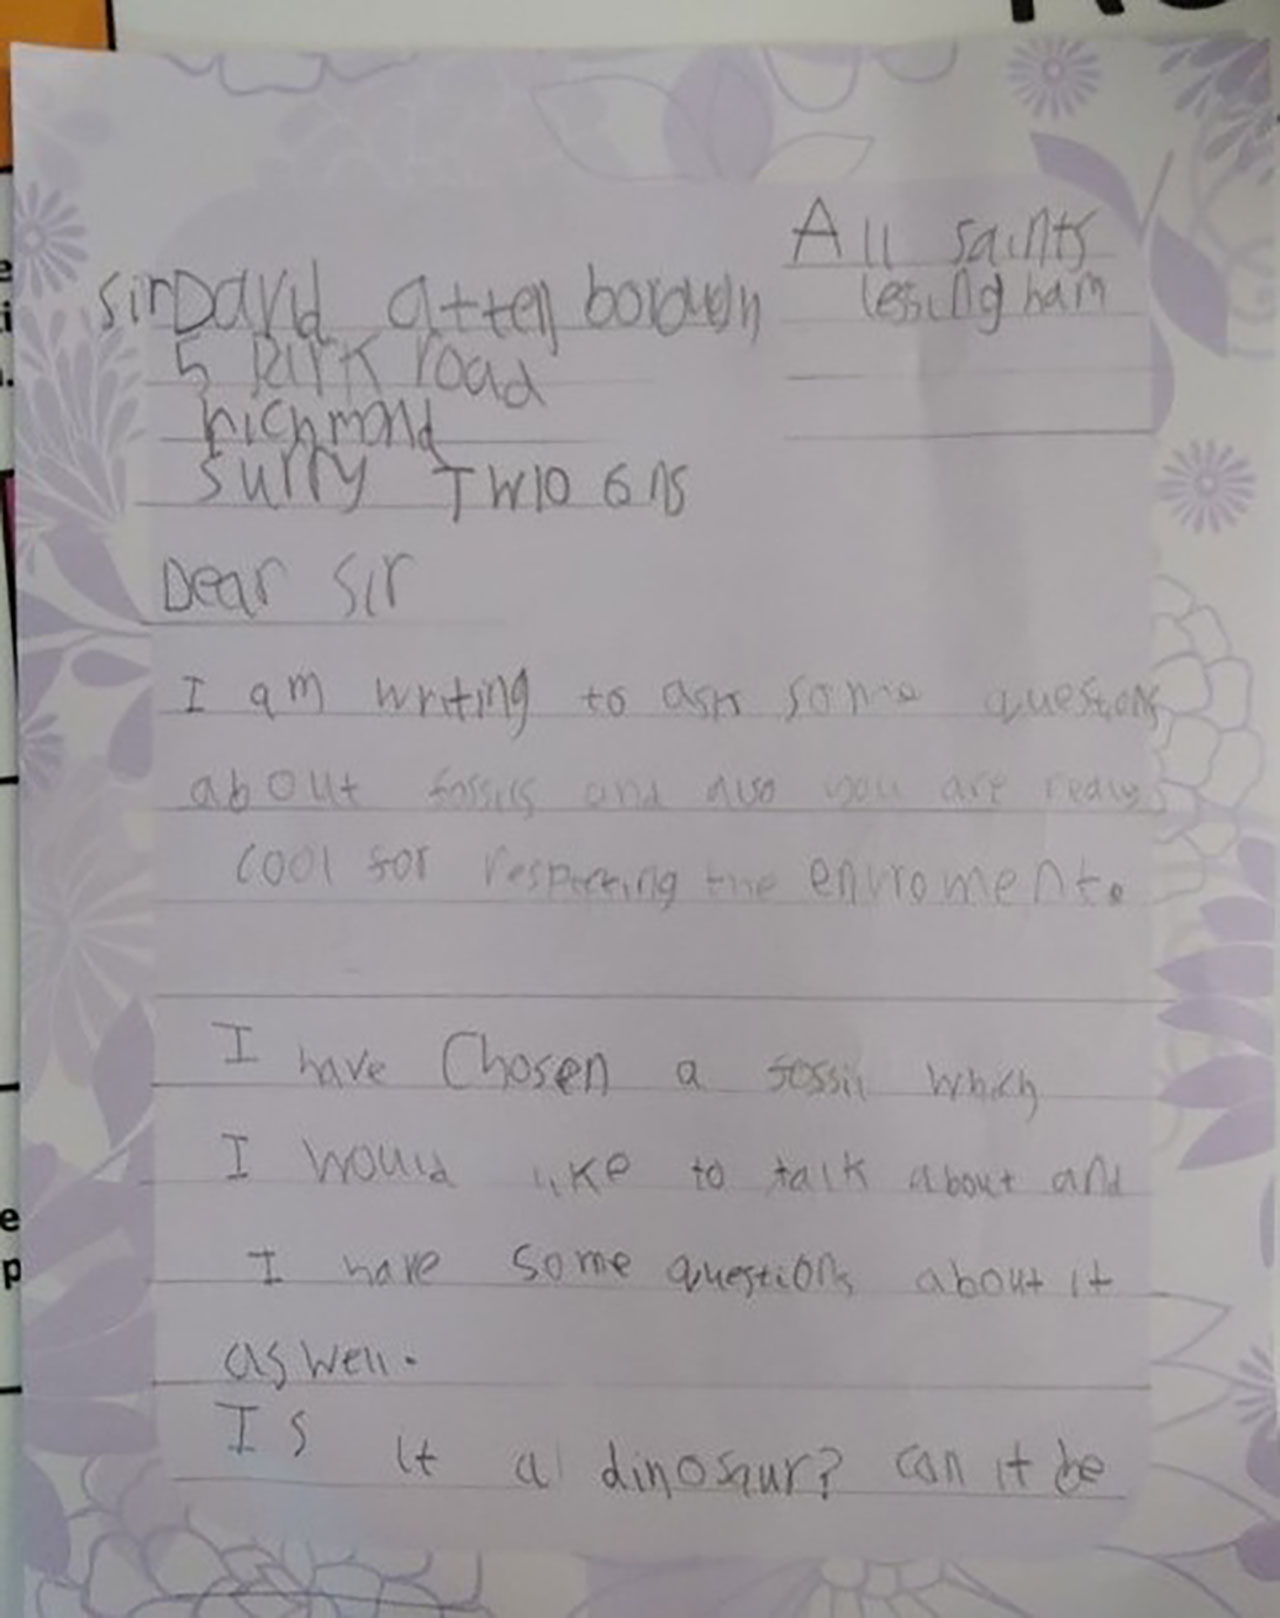 All saints
lessingham
sirDavid attenborough
5 Park road
richmond
surry TW10 6NS
Dear Sir
I am writing to ask some questions
about fossils and also you are realy
cool for respecting the enviroment.
I have Chosen a fossil which
I would like to talk about and
I have some questions about it
as well.
Is it a dinosaur? can it be